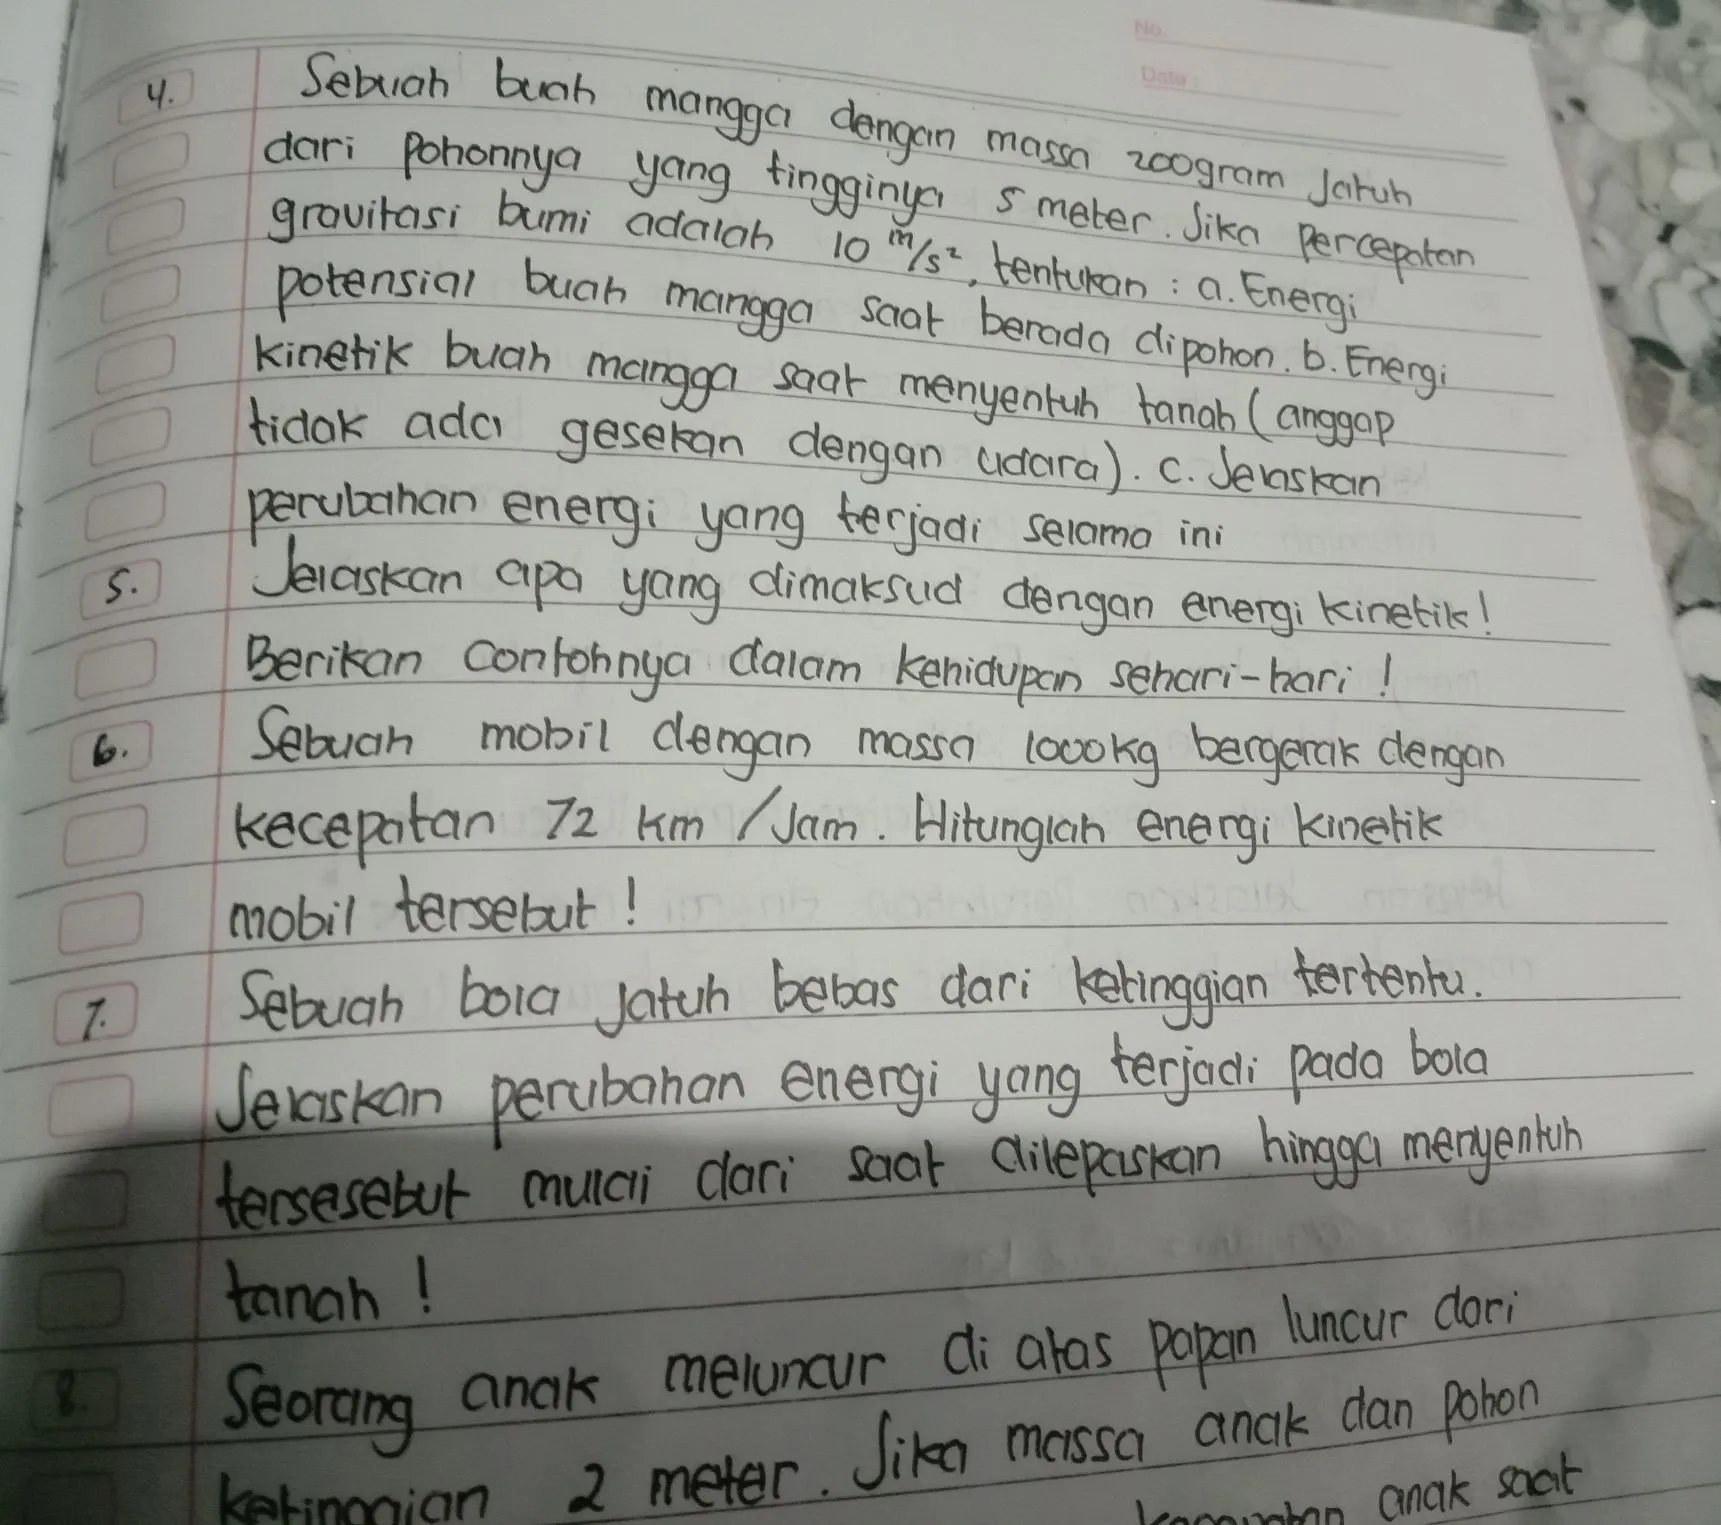 No.
Date :
4. Sebuah buah mangga dengan massa 200gram Jatuh
dari Pohonnya yang tingginya 5 meter. Jika Percepatan
gravitasi bumi adalah 10 m/s², tentukan : a. Energi
potensial buah mangga saat berada dipohon. b. Energi
kinetik buah mangga saat menyentuh tanah (anggap
tidak ada gesekan dengan udara). c. Jelaskan
perubahan energi yang terjadi selama ini
5. Jelaskan apa yang dimaksud dengan energi kinetik!
Berikan contohnya dalam kehidupan sehari-hari!
6. Sebuah mobil dengan massa 1000kg bergerak dengan
kecepatan 72 km /Jam. Hitunglah energi kinetik
mobil tersebut!
7. Sebuah bola jatuh bebas dari ketinggian tertentu.
Jelaskan perubahan energi yang terjadi pada bola
tersesebut mulai dari saat dilepaskan hingga menyentuh
tanah!
8. Seorang anak meluncur di atas papan luncur dari
ketinggian 2 meter. Jika massa anak dan pohon
anak saat